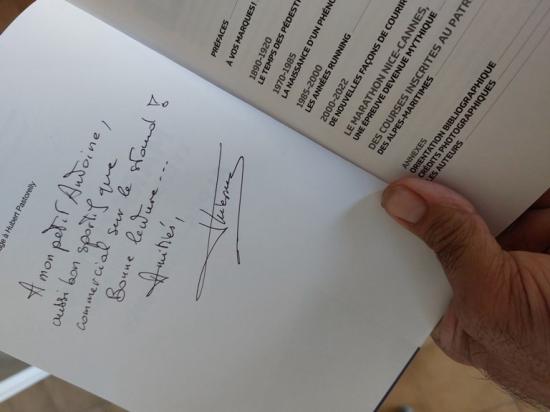 age à Hubert Pastorelly
A mon petit Antoine,
aussi bon sportif que
commercial sur le stand !
Bonne lecture ...
Amitiés,
PRÉFACES
À VOS MARQUES !
1890-1920
LE TEMPS DES PÉDESTR
1970-1985
LA NAISSANCE D'UN PHÉNO
1985-2000
LES ANNÉES RUNNING
2000-2022
DE NOUVELLES FAÇONS DE COURIR
LE MARATHON NICE-CANNES,
UNE ÉPREUVE DEVENUE MYTHIQUE
DES COURSES INSCRITES AU PATR
DES ALPES-MARITIMES
ANNEXES
ORIENTATION BIBLIOGRAPHIQUE
CRÉDITS PHOTOGRAPHIQUES
LES AUTEURS